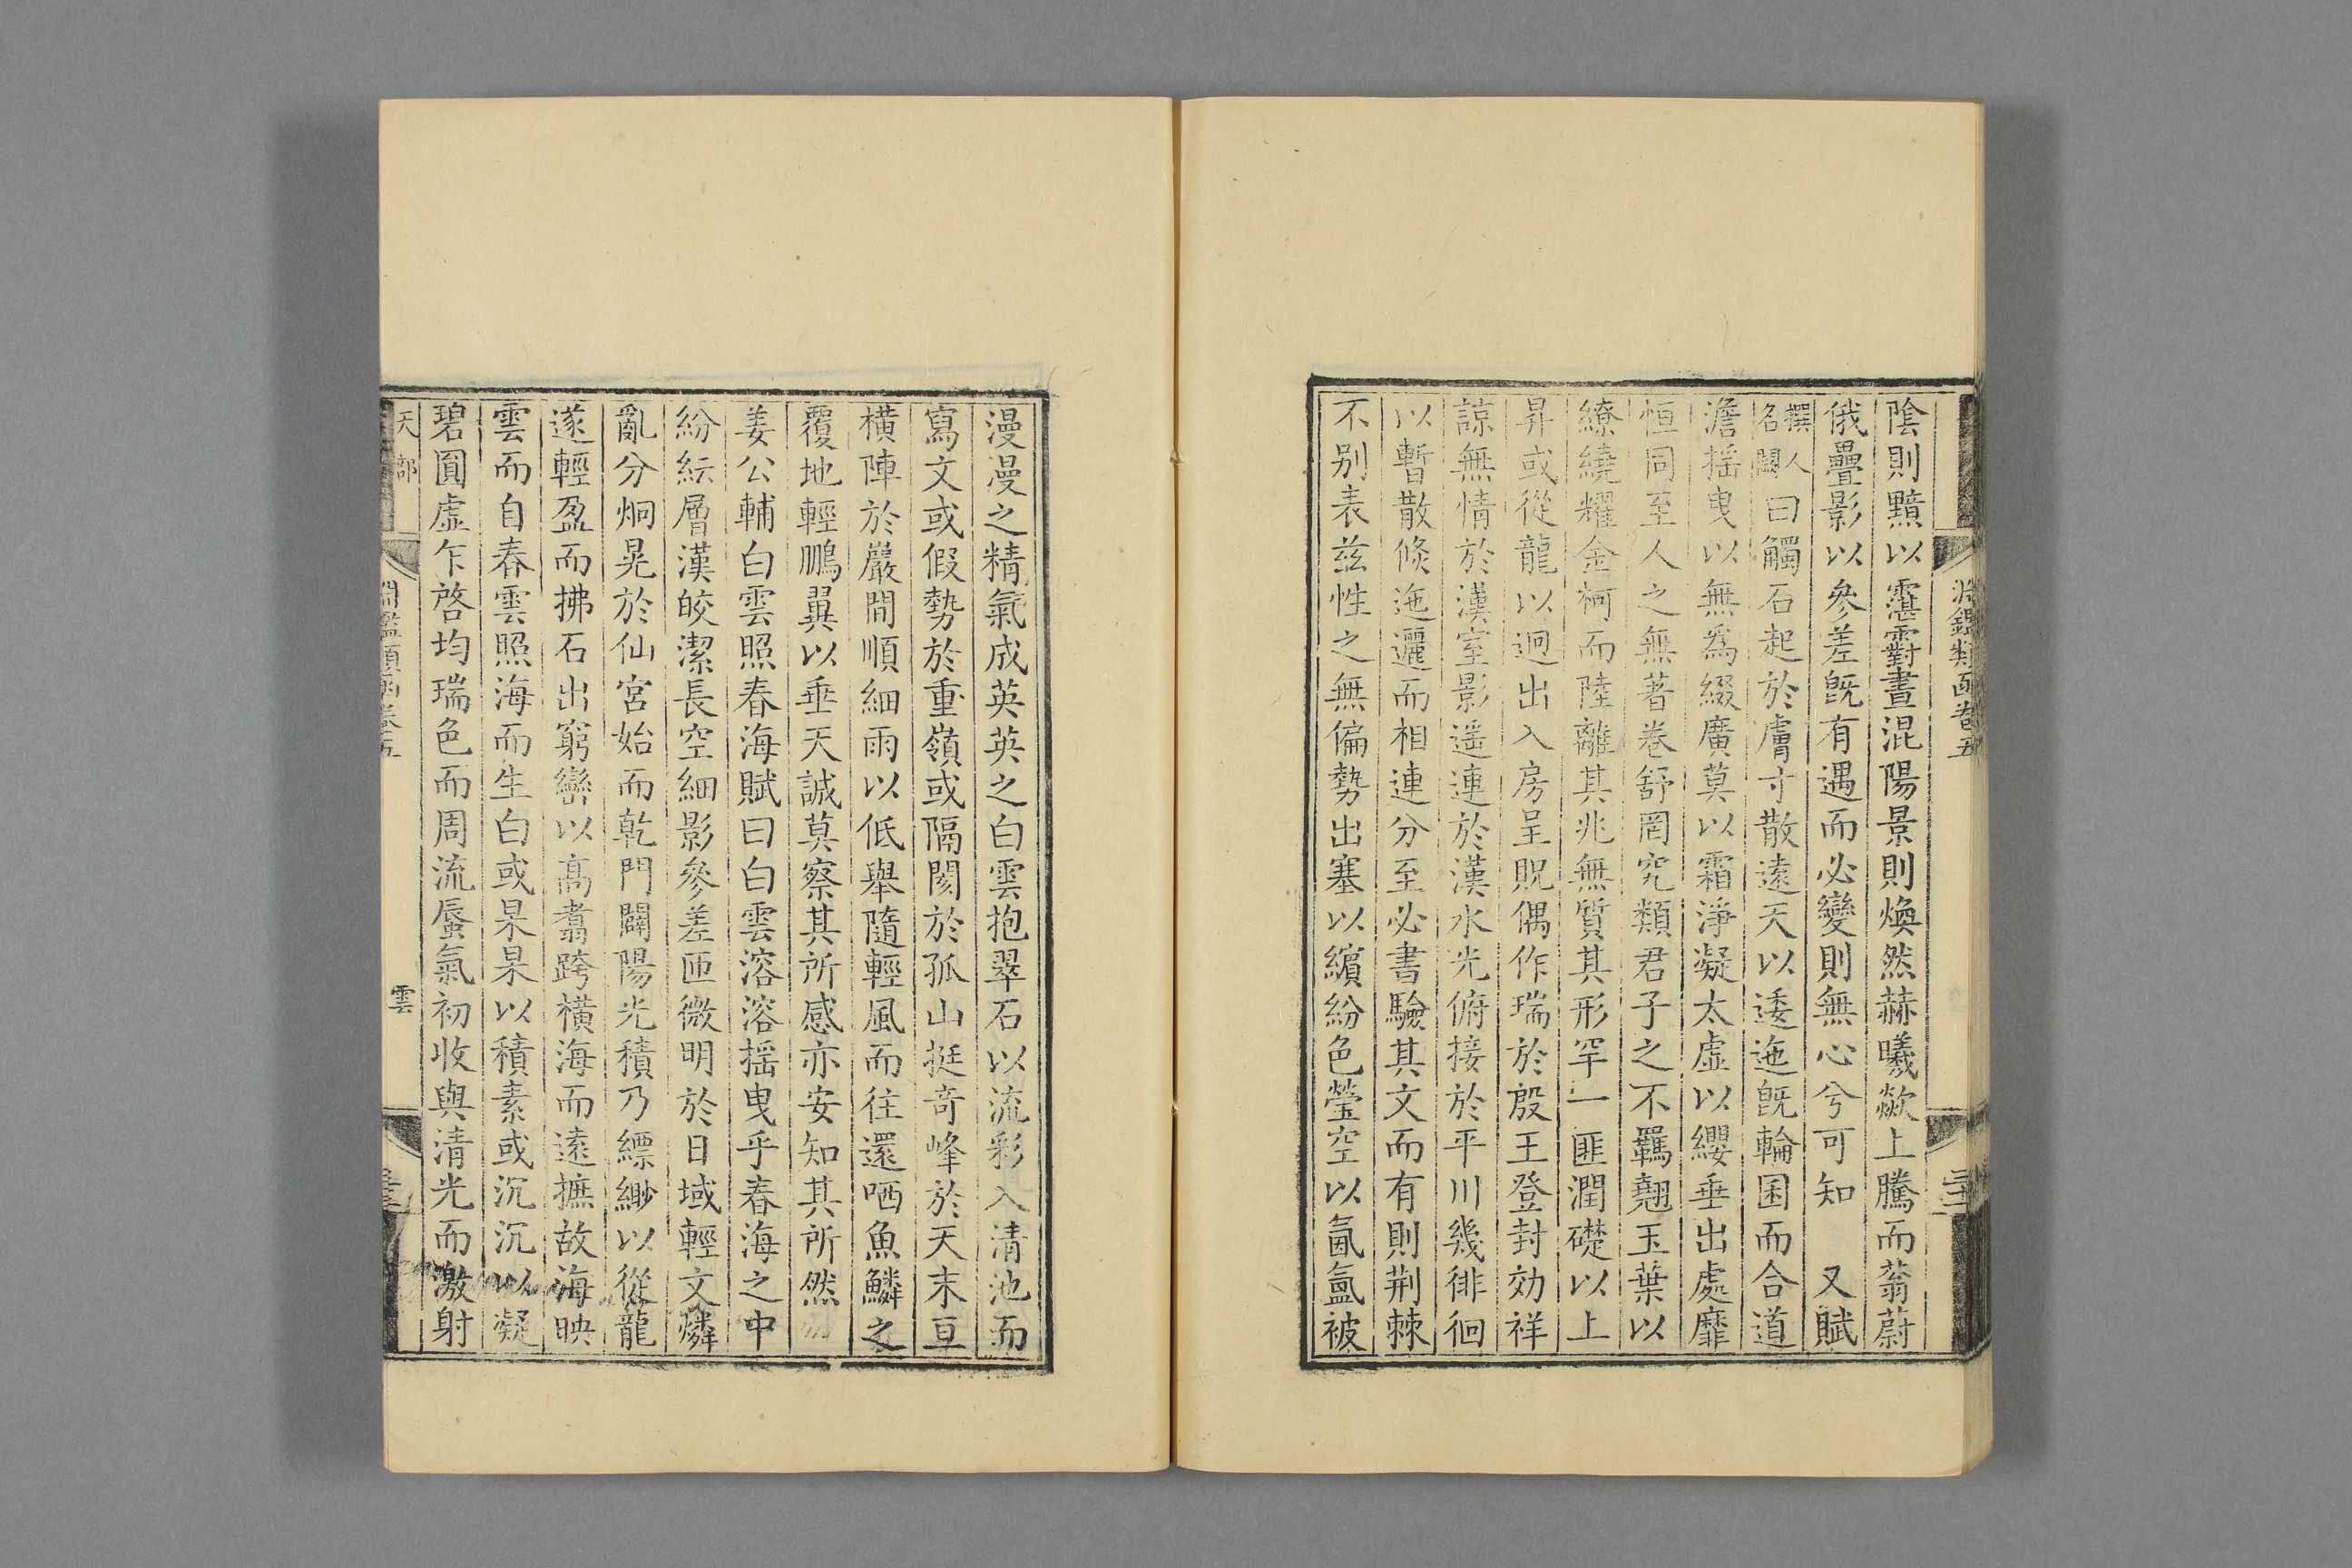 淵鑑類函卷五
陰則黯以靆霴晝混陽景則煥然赫曦歘上騰而蓊蔚
俄疊影以參差旣有遇而必變則無心兮可知　又賦
撰人名闕曰觸石起於膚寸散遠天以逶迤旣輪囷而合道
澹揺曳以無爲綴廣莫以霜淨凝太虛以纓垂出處靡
恒同至人之無著卷舒罔究類君子之不羈翹玉葉以
繚繞耀金柯而陸離其兆無質其形罕一匪潤礎以上
昇或從龍以迥出入房呈貺偶作瑞於殷王登封効祥
諒無情於漢室影遥連於漢水光俯接於平川幾徘徊
以暫散倐迤邐而相連分至必書驗其文而有則荆棘
不别表兹性之無偏勢出塞以繽紛色瑩空以氤氲被
漫漫之精氣成英英之白雲抱翠石以流彩入清池而
寫文或假勢於重嶺或隔閡於孤山挺奇峰於天末亘
横陣於巖間順細雨以低舉隨輕風而往還哂魚鱗之
覆地輕鵬翼以垂天誠莫察其所感亦安知其所然
姜公輔白雲照春海賦曰白雲溶溶揺曳乎春海之中
紛紜層漢皎潔長空細影參差匝微明於日域輕文燐
亂分炯晃於仙宮始而乾門闢陽光積乃縹緲以從龍
遂輕盈而拂石出窮巒以高翥跨横海而遠摭故海映
雲而自春雲照海而生白或杲杲以積素或沉沉以凝
碧圓虛乍啓均瑞色而周流蜃氣初收與清光而激射
天部
淵鑑類函卷五
雲